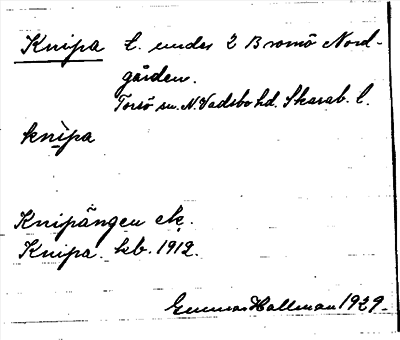 Knipa t. under 2 Bromö Nord-
gården.
Torsö sn. N. Vadsbo hd. Skarab. l.
knipa
Knipängen ek.
Knipa. kb. 1912.
Gunnar Hallman 1929.